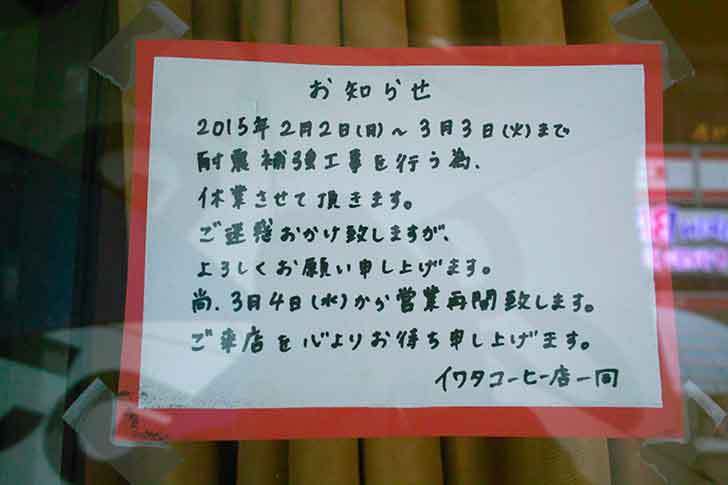 お知らせ
2015年2月2日(月)～3月3日(火)まで
耐震補強工事を行う為、
休業させて頂きます。
ご迷惑おかけ致しますが、
よろしくお願い申し上げます。
尚、3月4日(水)から営業再開致します。
ご来店を心よりお待ち申し上げます。
イワタコーヒー店一同